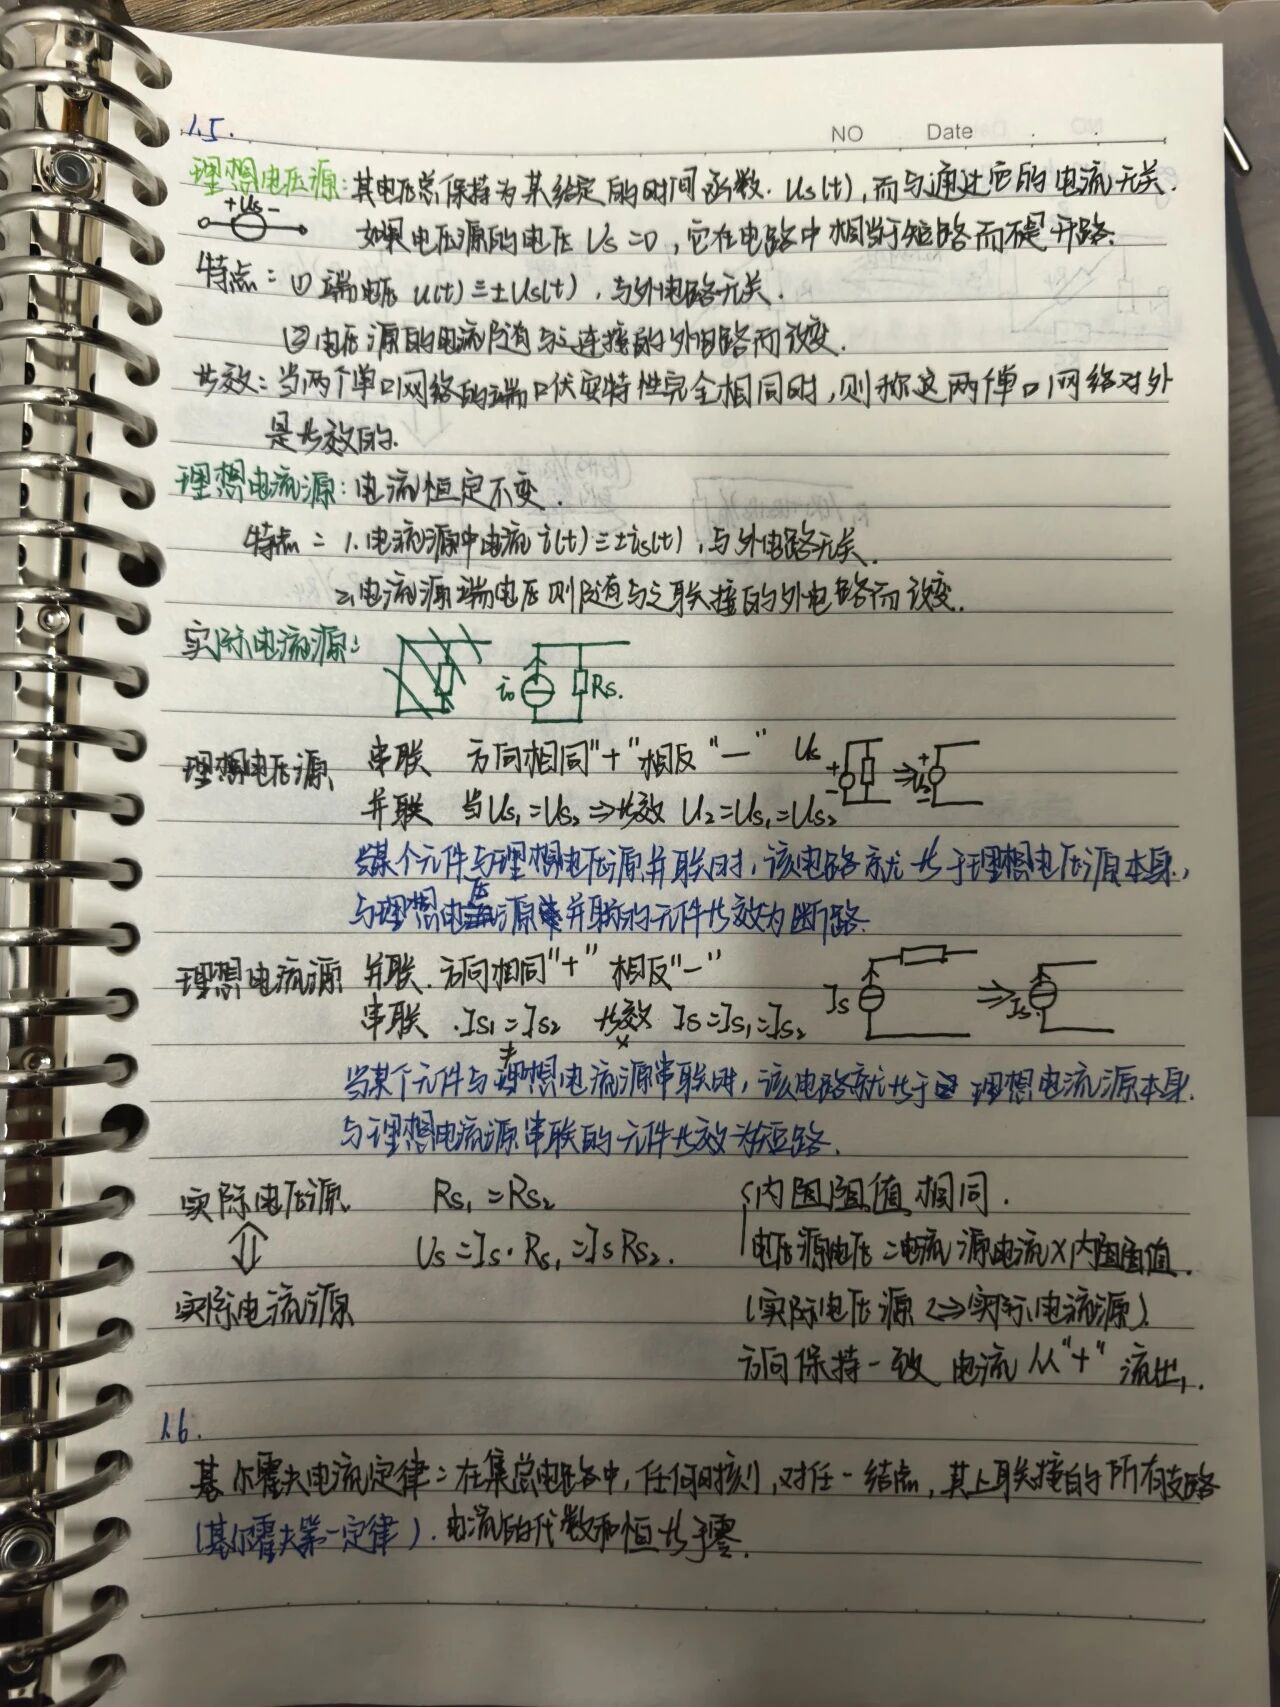 1.5.
NO Date
理想电压源:其电压总保持为某给定的时间函数. Us(t),而与通过它的电流无关.
+ Us -
如果电压源的电压 Us=0,它在电路中相当于短路而不是开路.
特点:① 端电压 u(t)≡±Us(t),与外电路无关.
②电压源的电流随与之连接的外电路而改变.
等效:当两个单口网络的端口伏安特性完全相同时,则称这两个单口网络对外
是等效的.
理想电流源:电流恒定不变.
特点:1.电流源中电流 i(t)≡±is(t),与外电路无关.
2.电流源端电压则随与之联接的外电路而改变.
实际电流源: is Rs.
理想电压源 串联 方向相同"+"相反"-" Us + - ⇒ + Us -
并联 当Us1=Us2⇒等效 U2=Us1=Us2
当某个元件与理想电压源并联时,该电路就等于理想电压源本身,
与理想电压源并联的元件等效为断路.
理想电流源 并联.方向相同"+" 相反"-"
串联 .Is1=Is2 等效 Is=Is1=Is2 Is ⇒ Is.
≠ ×
当某个元件与理想电流源串联时,该电路就等于理想电流源本身.
与理想电流源串联的元件等效为短路.
实际电压源 Rs1=Rs2 {内阻阻值相同.
⇕ Us=Is·Rs1=IsRs2. 电压源电压=电流源电流×内阻阻值.
实际电流源 (实际电压源⇔实际电流源)
方向保持一致 电流从"+"流出.
1.6.
基尔霍夫电流定律:在集总电路中,任何时刻,对任一结点,其上联接的所有支路
(基尔霍夫第一定律). 电流的代数和恒等于零.